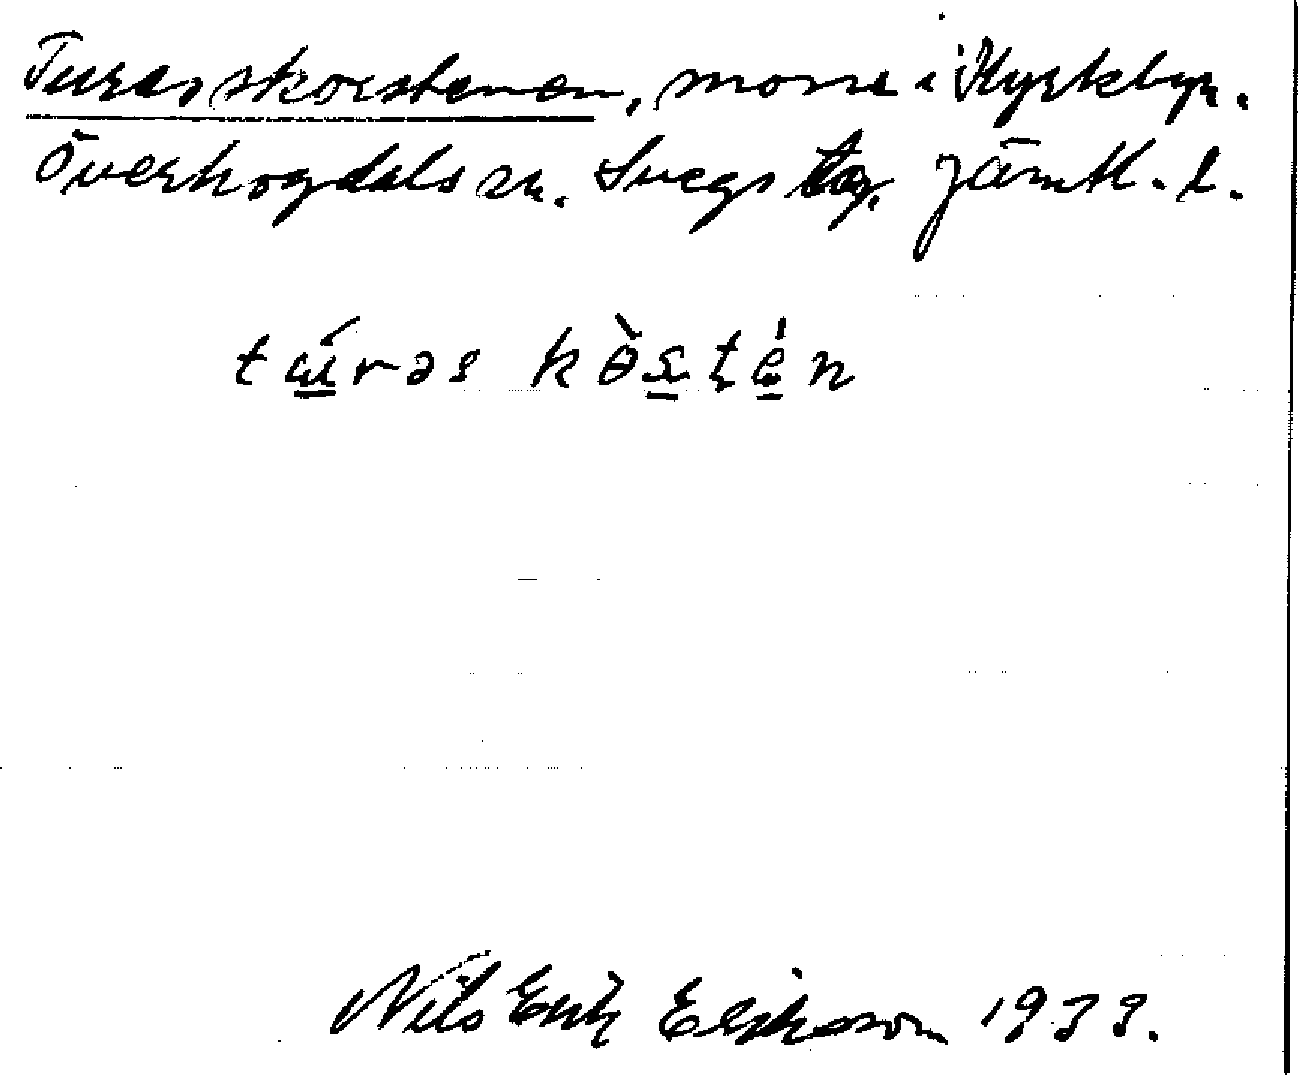 Turesskorstenen, morre i Kyrkbyn.
Överhogdals sn. Svegs tg. Jämtl. l.
túrəs kòsțén
Nils Erik Eriksson 1933.